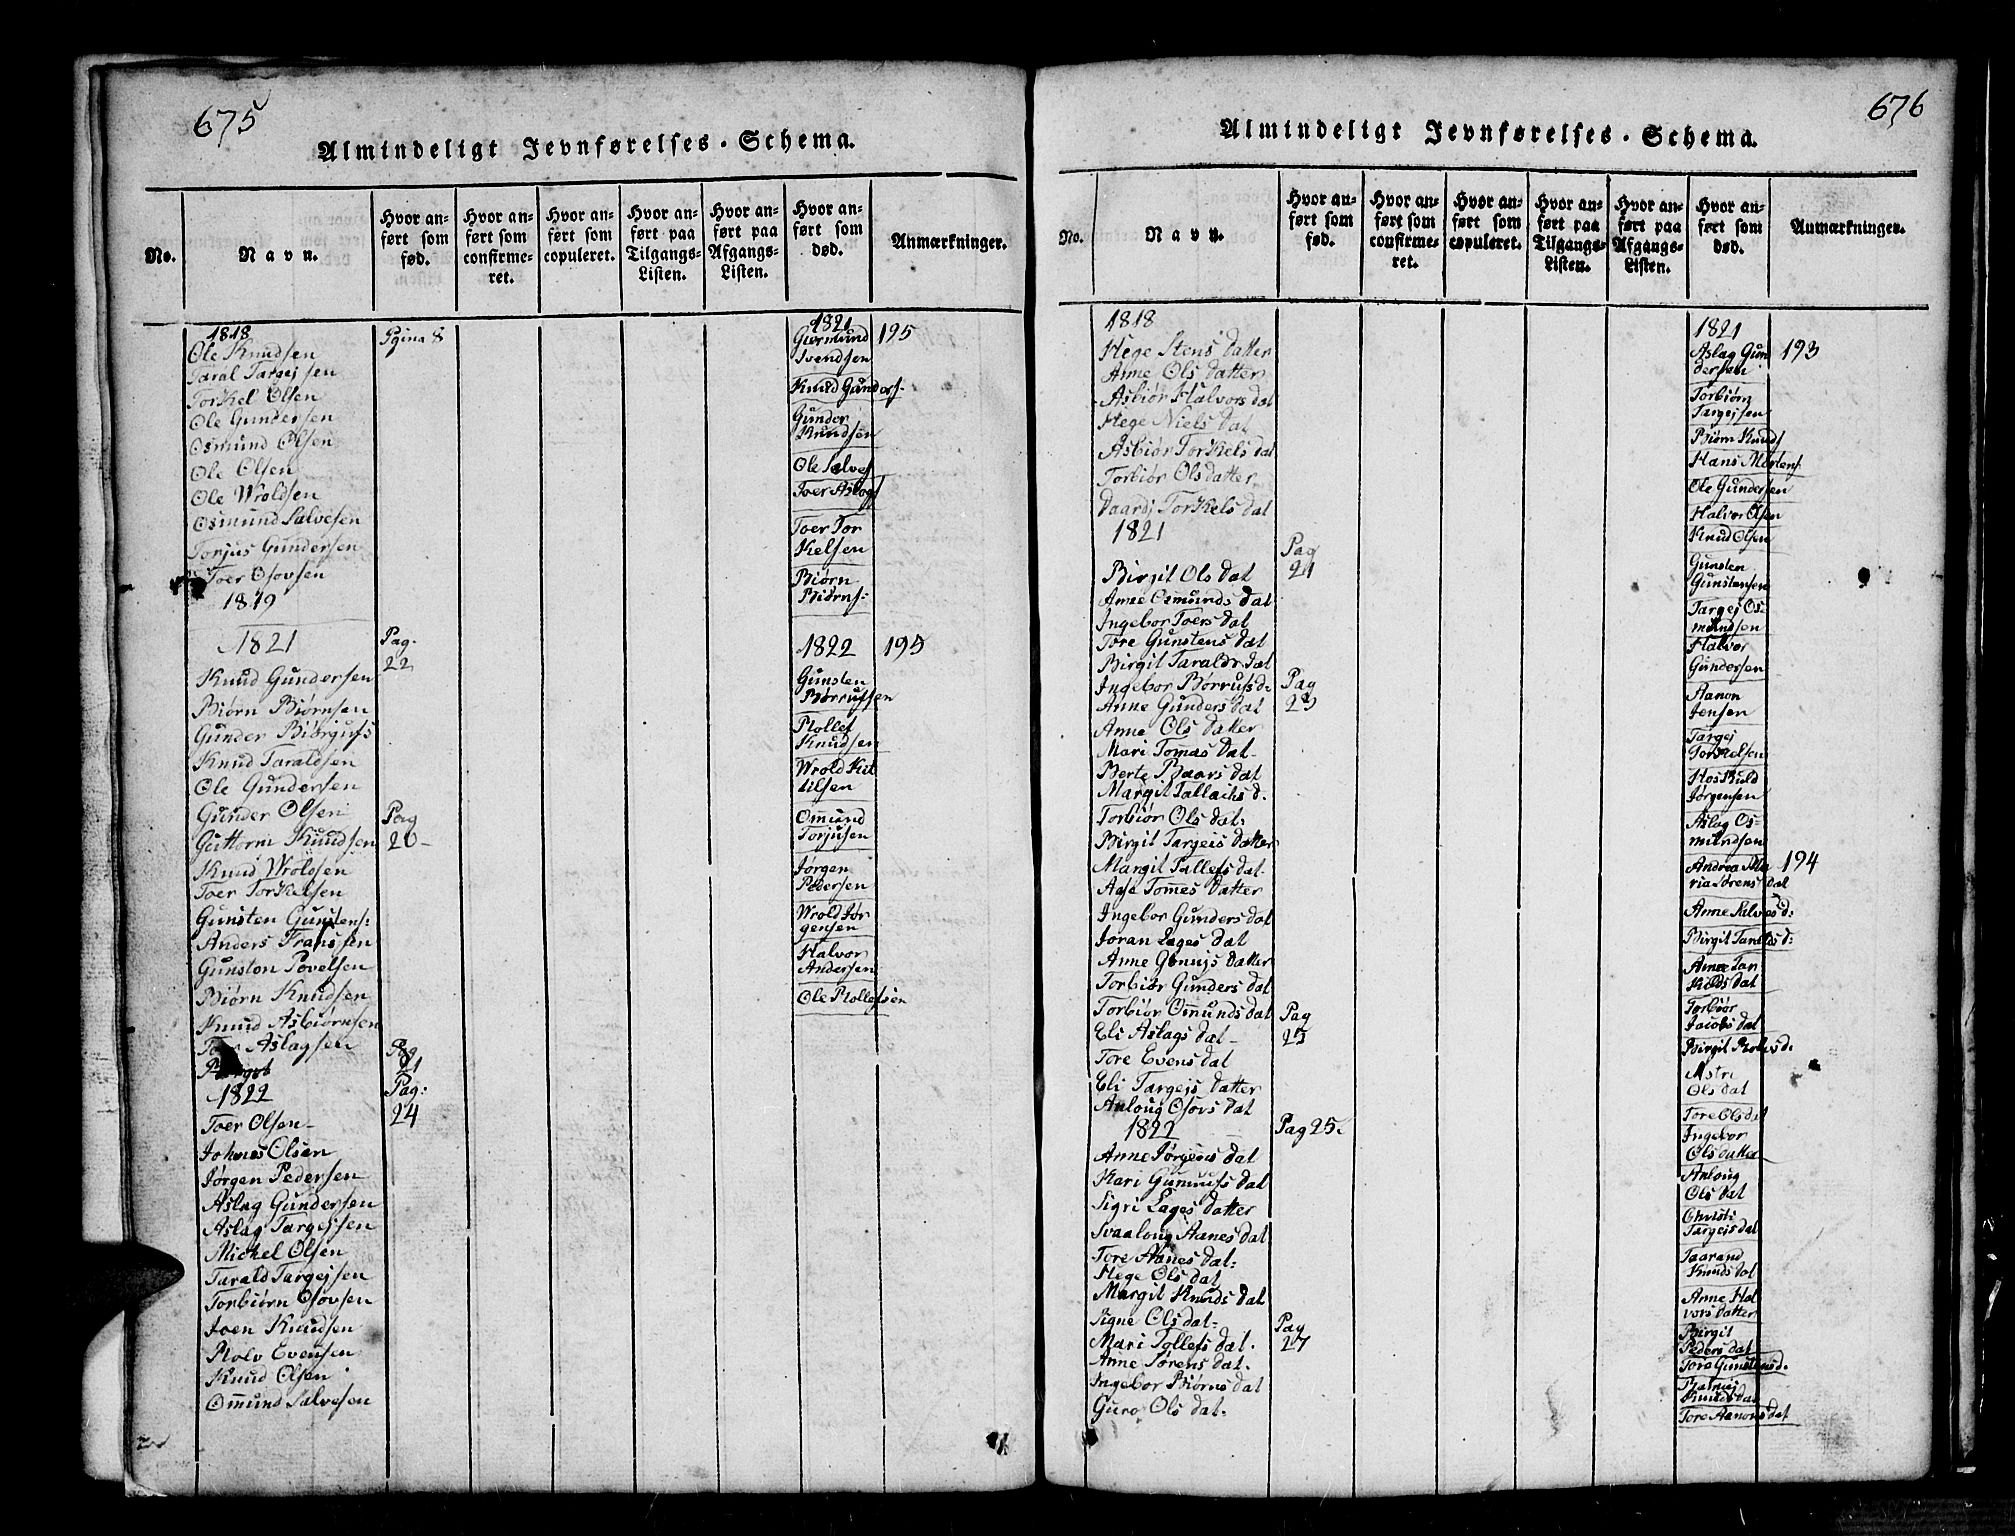 675
Almindeligt Jevnførelses-Schema.
No.
Navn.
Hvor anført som fød.
Hvor anført som confirmeret.
Hvor anført som copuleret.
Hvor anført paa Tilgangs-Listen.
Hvor anført paa Afgangs-Listen.
Hvor anført som død.
Anmærkninger.
1818
Ole Knudsen
Pagina 8
Taral Targejsen
Torkel Olsen
Ole Gundersen
Osmund Olsen
Ole Olsen
Ole Wroldsen
Osmund Salvesen
Torjus Gundersen
Toer Osovsen
1819
1821
Pag.
22
Knud Gundersen
Biørn Biørnsen
Gunder Biørgufs
Knud Taraldsen
Ole Gundersen
Gunder Olsen
Pag
20-
Guttorm Knudsen
Knud Wroldsen
Toer Torkelsen
Gunsten Gunstens:
Anders Franssen
Gunston Povelsen
Biørn Knudsen
Knud Asbiørnsen
Toer Aslagsen
Pag
21
1822
Pag:
24
Toer Olsen-
Johnes Olsen
Jørgen Pedersen
Aslag Gundersen
Aslag Targejsen
Michel Olsen
Tarald Targejsen
Torbiørn Osovsen
Joen Knudsen
Rolv Evensen
Knud Olsen
Omund Salvesen
1821
Guormund
Svendsen
195
Knud Gunders-
Gunder
Knudsen
Ole Salves
Toer Aslags
Toer Tor
Kelsen
Biørn
Biørns-
1822
195
Gunsten
Børrufsen
Rollef
Knudsen
Wrold Kit
tilsen
Omund
Torjusen
Jørgen
Pedersen
Wrold Jør
gensen
Halvor
Andersen
Ole Rollefsen
676
Almindeligt Jevnførelses-Schema.
No.
Navn.
Hvor anført som fød.
Hvor anført som confirmeret.
Hvor anført som copuleret.
Hvor anført paa Tilgangs-Listen.
Hvor anført paa Afgangs-Listen.
Hvor anført som død.
Anmærkninger.
1818
Hege Stens datter
Anne Ols datter
Asbiør Halvors dat
Hege Niels dat
Asbiør Torkels dat
Torbiør Ols datter
Daardi Torkels dat
1821
Pag
21
Birgit Ols dat
Anne Osmunds dat
Ingebor Toers dat
Tore Gunstens dat
Birgit Taralds dat
Ingebor Børrufsd:
Pag
23
Anne Gunders dat
Anne Ols datter
Mari Tomas dat-
Berte Baars dat
Margit Tallachs d.
Torbiør Ols dat:
Birgit Targeis datter
Margit Tallefs dat.
Aase Tomes datter
Ingebor Gunders dat
Joran Lages dat
Anne Gunujs datter
Torbiør Gunders dat
Torbiør Omunds dat
Pag
23
Eli Aslags dat-
Tore Evens dat
Eli Targejs datter
Anloug Osovs dat
1822
Pag 25.
Anne Jørgens dat
Kari Gunnufs dat
Sigri Lages datter
Svaaloug Aanes dat
Tore Aanes dat:
Hege Ols dat
Margit Knuds dat
Signe Ols dat:
Pag
27
Mari Tollefs dat.
Anne Sørens dat.
Ingebor Biørns dat
Guro Ols dat:
1821
Aslag Gun
dersen
193
Torbiørn
Targejsen
Biørn Knuds
Hans Mortens
Ole Gundersen
Halvor Olsen
Knud Olsen
Gunsten
Gunstensen
Targej Os
mundsen
Halvor
Gundersen
Aanon
Jensen
Targej
Torkelsen
Hoskuld
Jørgensen
Aslag Os=
mundsen
Andrea Ma
ria Sørens dat
194
Anne Salves d:
Birgit Taralds d:
Anne Tar
Kelds dat
Torbiør
Jacobs dat
Birgit Rolvs d:
Astri
Ols dat
Tore Ols dat
Ingebor
Ols datter
Anloug
Ols dat
Christi
Targeis dat
Taarand
Knuds dat
Anne Hal
vors datter
Birgit
Peders dat
Tore Gunstens d.
Knuds dat
Tore Aanons dat